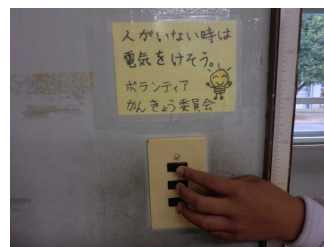 人がいない時は
電気をけそう。
ボランティア
かんきょう委員会